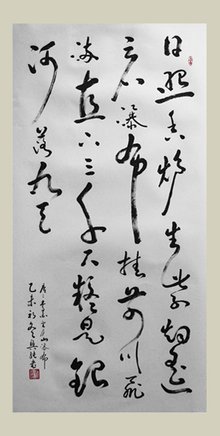 日照香炉生紫烟遥
看瀑布挂前川飛
流直下三千尺疑是銀
河落九天
唐李白望庐山瀑布
乙未初冬書